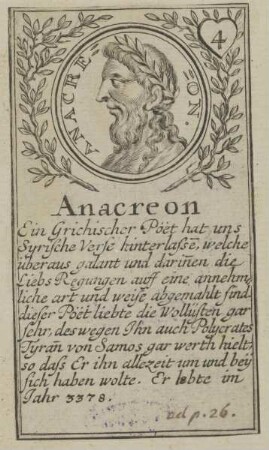 ANACRE=
=ON.
4
Anacreon
Ein Grichischer Pöet hat uns
Lyrische Verse hinterlaßē, welche
überaus galant und dariñen die
Liebs Regungen auff eine annehm,
liche art und weise abgemahlt sind.
dieser Poët liebte die Wollusten gar
sehr, deswegen Ihn auch Polycrates
Tyran von Samos gar werth hielt,
so daß Er ihn allezeit um und beÿ
sich haben wolte. Er lebte im
Jahr 3378.
ad p. 26.